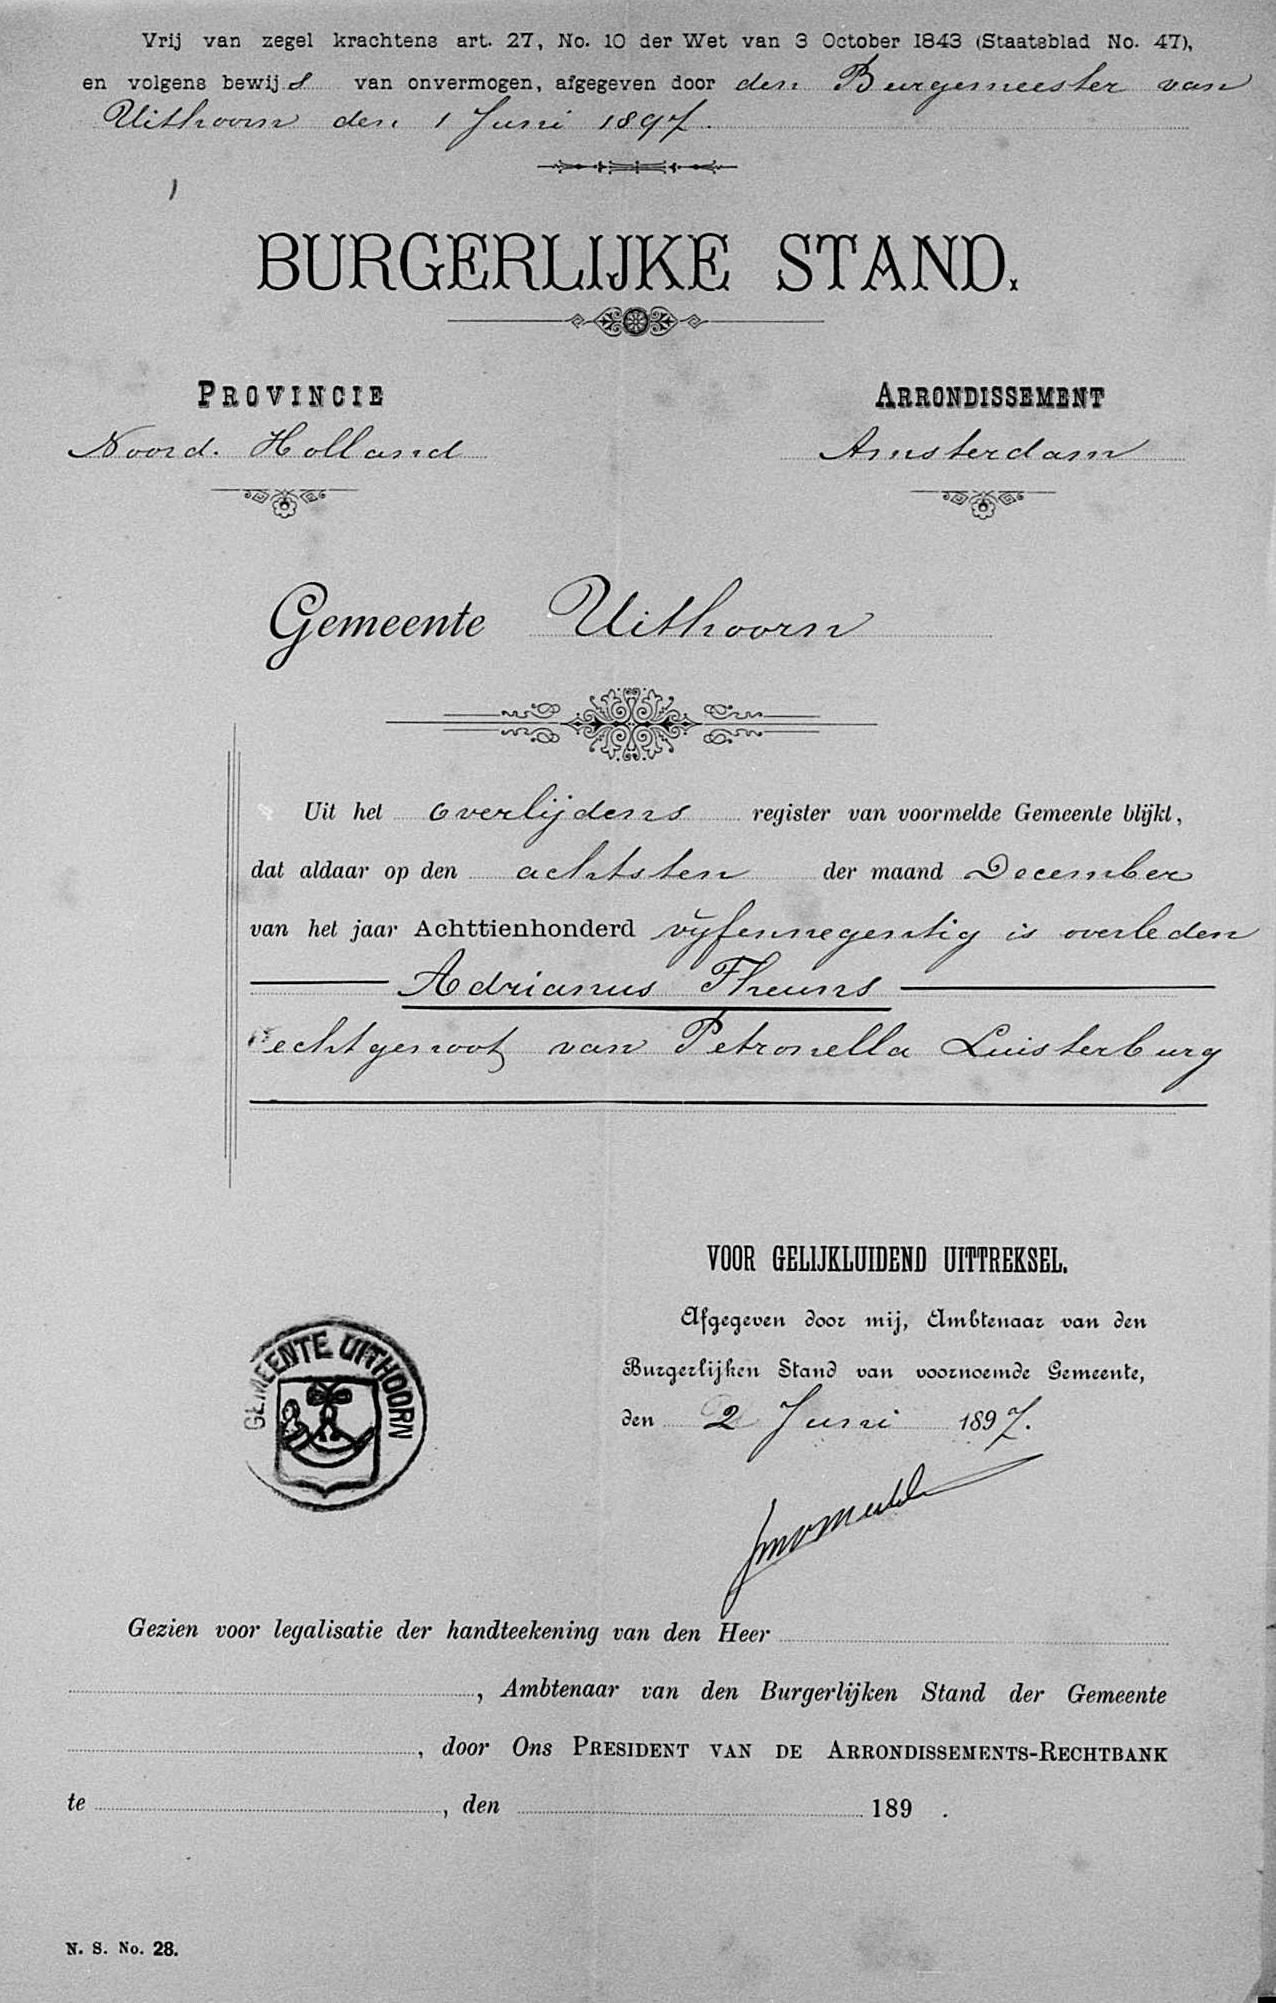 Vrij van zegel krachtens art. 27, No. 10 der Wet van 3 October 1843 (Staatsblad No. 47),
en volgens bewijs van onvermogen, afgegeven door den Burgemeester van
Uithoorn den 1 Juni 1897.
BURGERLIJKE STAND.
PROVINCIE
Noord. Holland
ARRONDISSEMENT
Amsterdam
Gemeente Uithoorn
Uit het overlijdens register van voormelde Gemeente blijkt,
dat aldaar op den achtsten der maand December
van het jaar Achttienhonderd vijfennegentig is overleden
Adrianus Theuns
echtgenoot van Petronella Luisterburg
VOOR GELIJKLUIDEND UITTREKSEL.
Afgegeven door mij, Ambtenaar van den
Burgerlijken Stand van voornoemde Gemeente,
den 2 Juni 1897.
GEMEENTE UITHOORN
Gezien voor legalisatie der handteekening van den Heer
, Ambtenaar van den Burgerlijken Stand der Gemeente
, door Ons PRESIDENT VAN DE ARRONDISSEMENTS-RECHTBANK
te , den 189 .
N. S. No. 28.